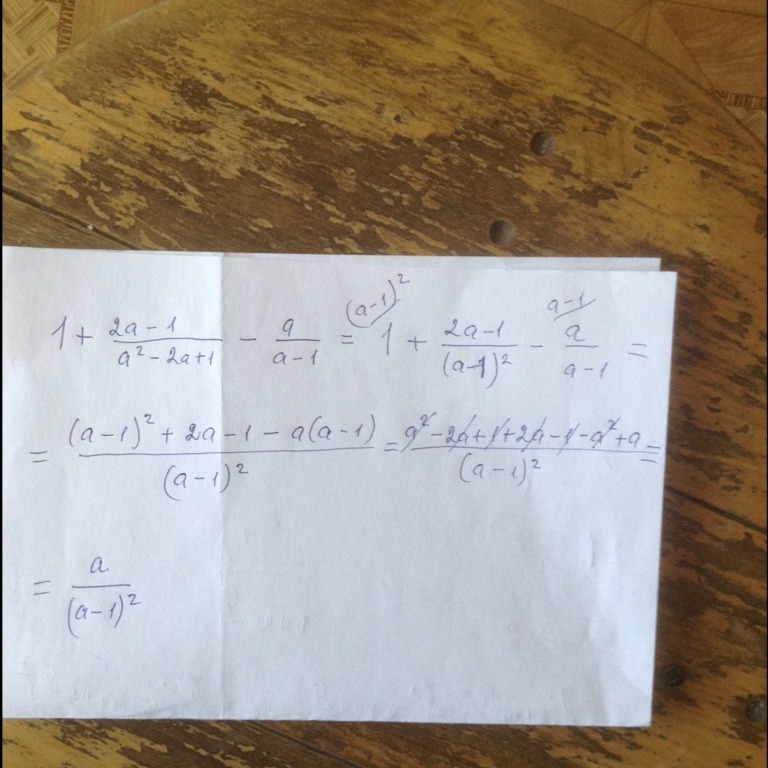 1 + \frac{2a-1}{a^2-2a+1} - \frac{a}{a-1} = 1^{(a-1)^2/} + \frac{2a-1}{(a-1)^2} - \frac{a^{a-1/}}{a-1} =
= \frac{(a-1)^2+2a-1-a(a-1)}{(a-1)^2} = \frac{a^2-2a+1+2a-1-a^2+a}{(a-1)^2} =
= \frac{a}{(a-1)^2}